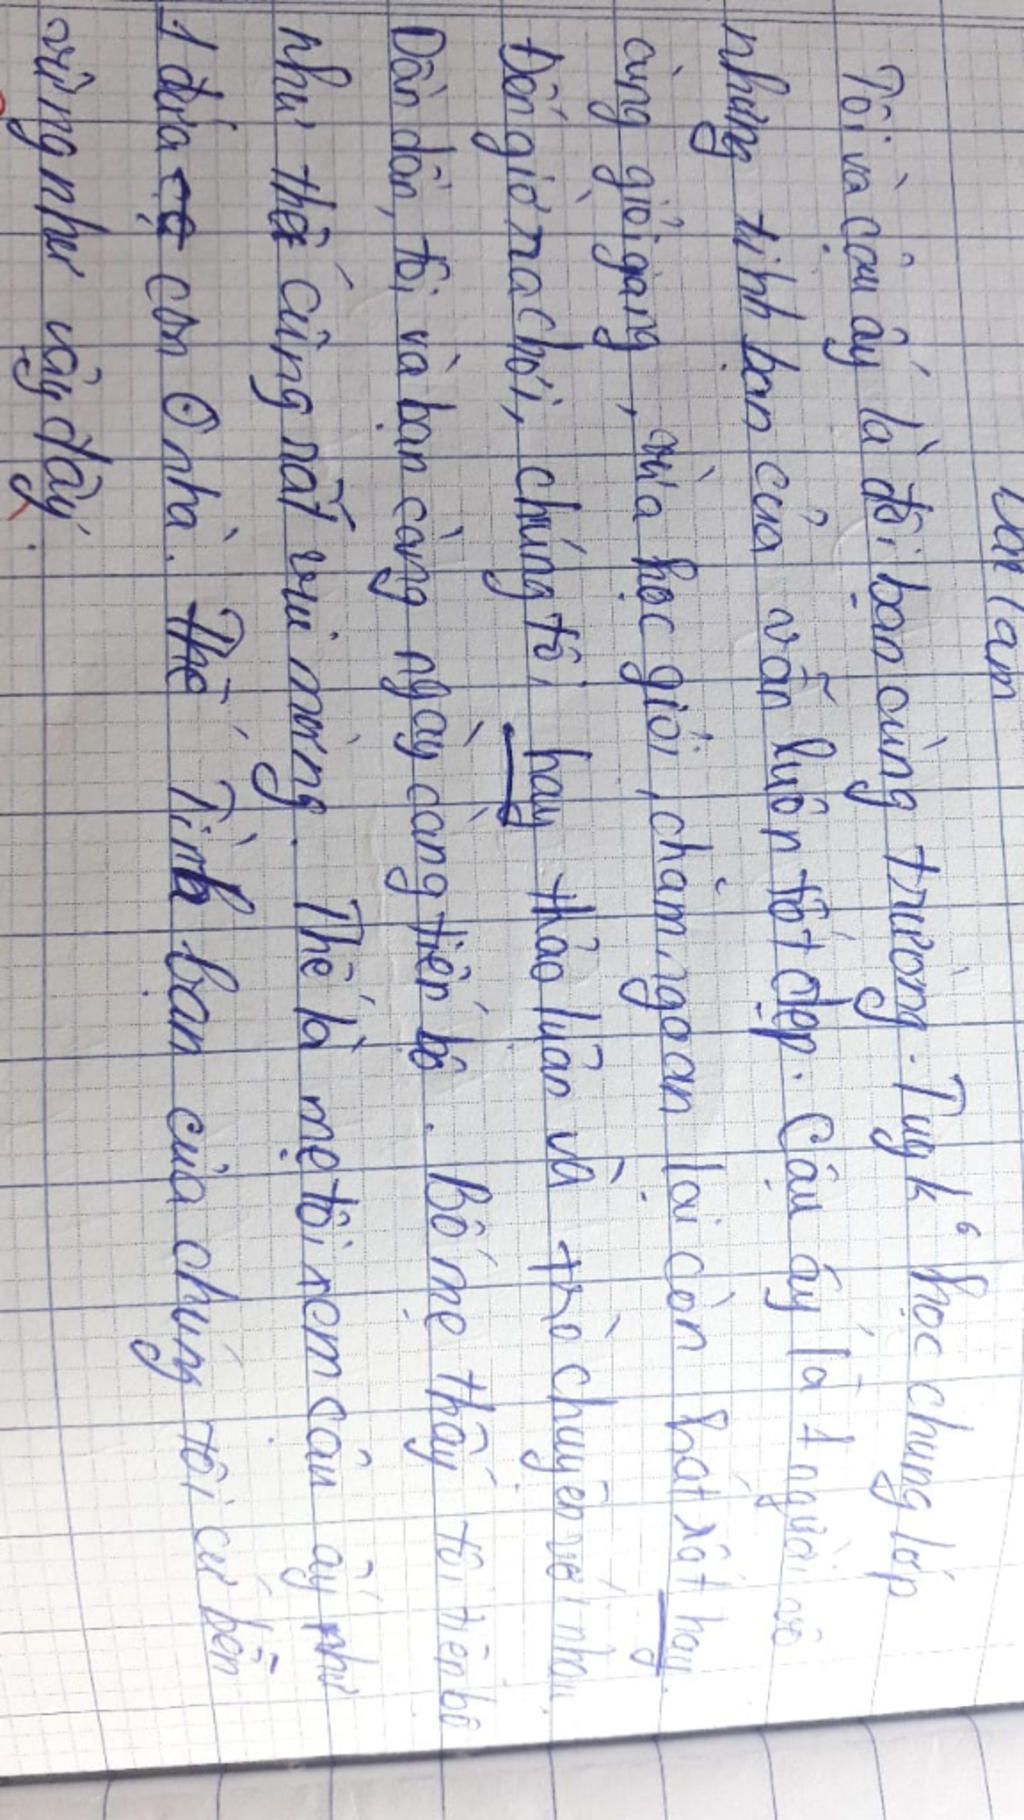 Bài làm
Tôi và cậu ấy là đôi bạn cùng trường. Tuy k° học chung lớp
nhưng tình bạn của vẫn luôn tốt đẹp. Cậu ấy là 1 người vô
cùng giỏi giang, vừa học giỏi, chăm ngoan lại còn hát rất hay.
Đến giờ ra chơi, chúng tôi hay thảo luận và trò chuyện với nhau.
Dần dần, tôi và bạn càng ngày càng tiến bộ. Bố mẹ thấy tôi tiến bộ
như thế cũng rất vui mừng. Thế là mẹ tôi xem cậu ấy như
1 đứa con ở nhà. Thế Tình bạn của chúng tôi cứ bền
vững như vậy đấy.